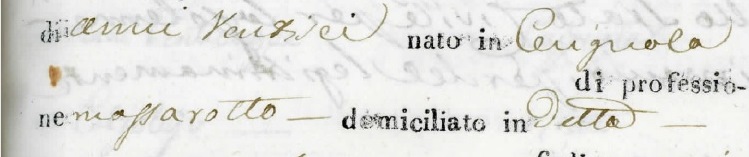 di anni Ventisei nato in Cerignola
di professio-
ne massarotto — domiciliato in Detta —